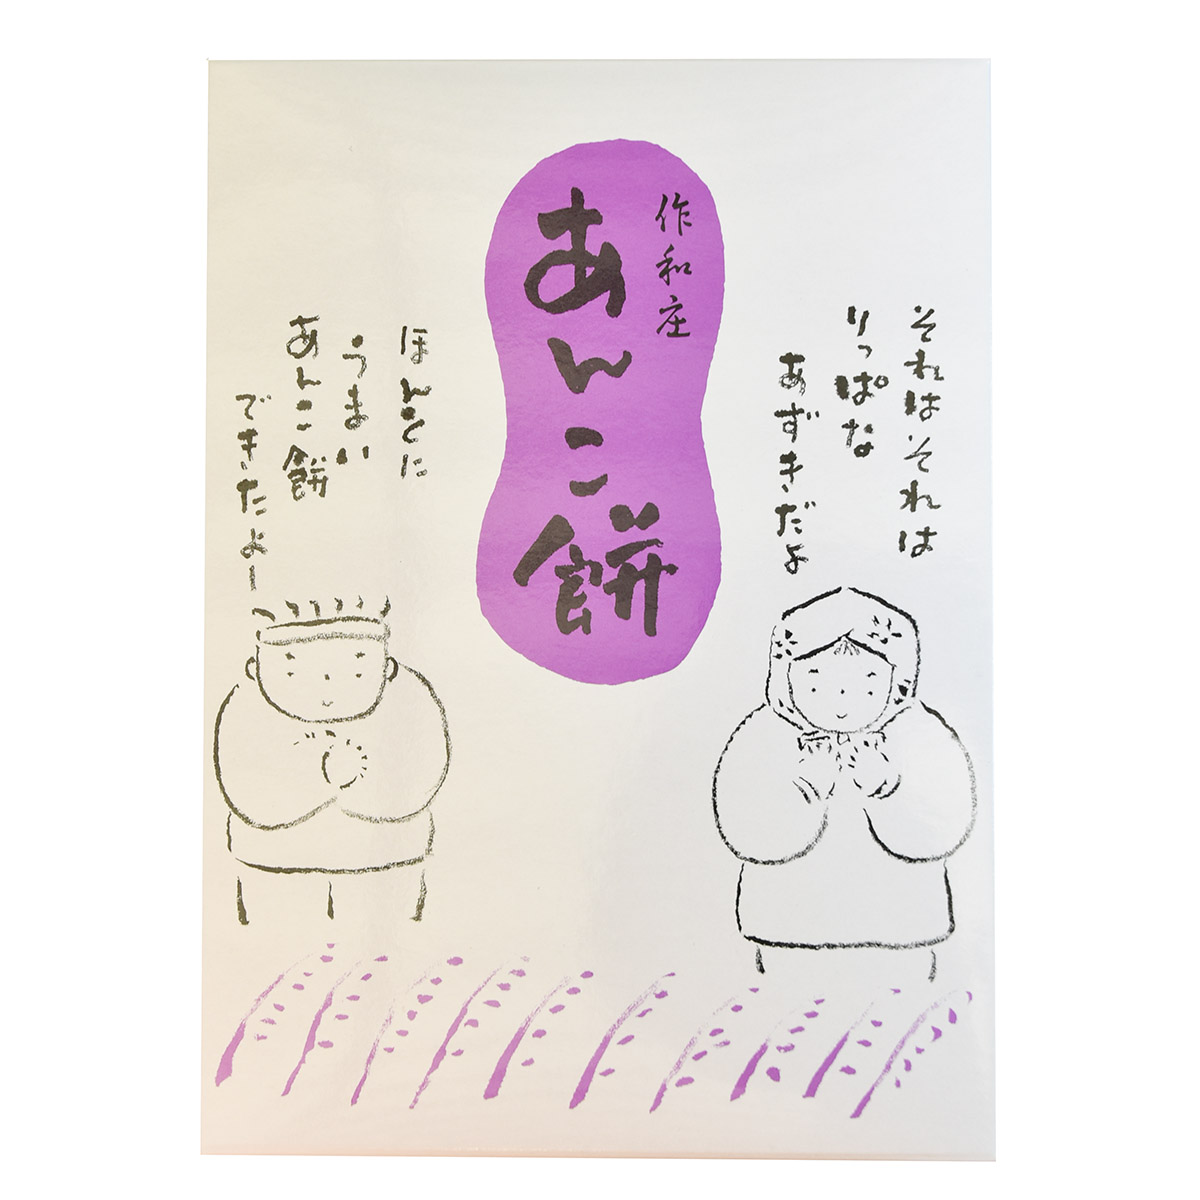 作和庄
あんこ餅
それはそれは
りっぱな
あずきだよ
ほんとに
うまい
あんこ餅
できたよー